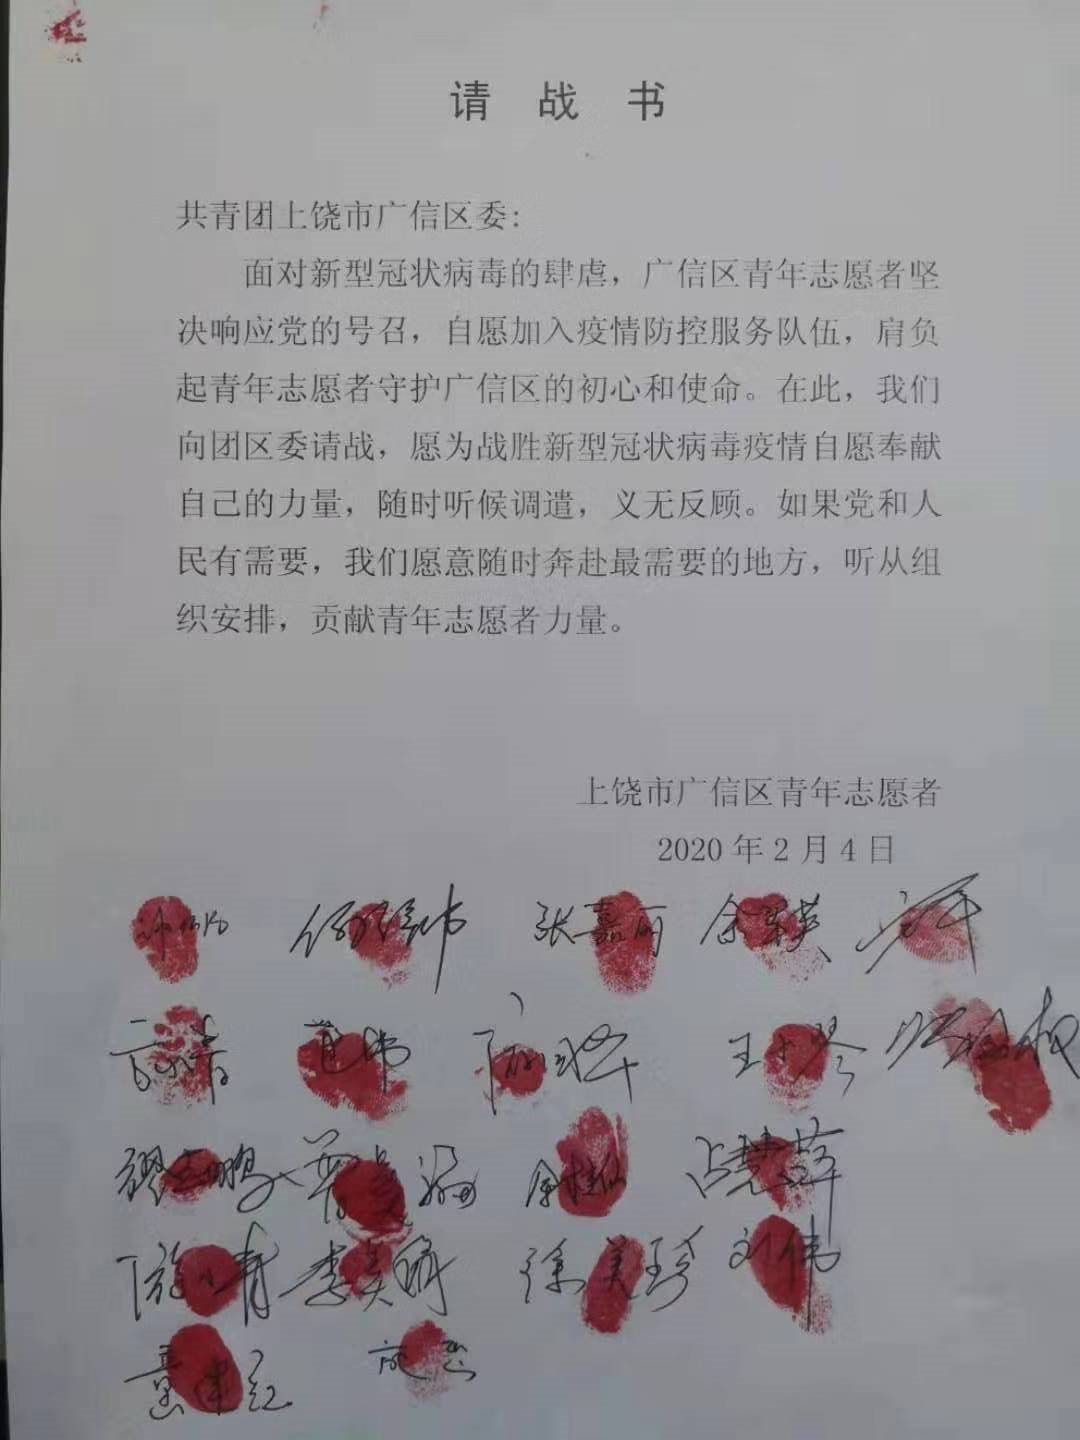 请战书
共青团上饶市广信区委:
面对新型冠状病毒的肆虐，广信区青年志愿者坚
决响应党的号召，自愿加入疫情防控服务队伍，肩负
起青年志愿者守护广信区的初心和使命。在此，我们
向团区委请战，愿为战胜新型冠状病毒疫情自愿奉献
自己的力量，随时听候调遣，义无反顾。如果党和人
民有需要，我们愿意随时奔赴最需要的地方，听从组
织安排，贡献青年志愿者力量。
上饶市广信区青年志愿者
2020年2月4日
张嘉可
王小琴
占慧萍
徐美珍 刘伟